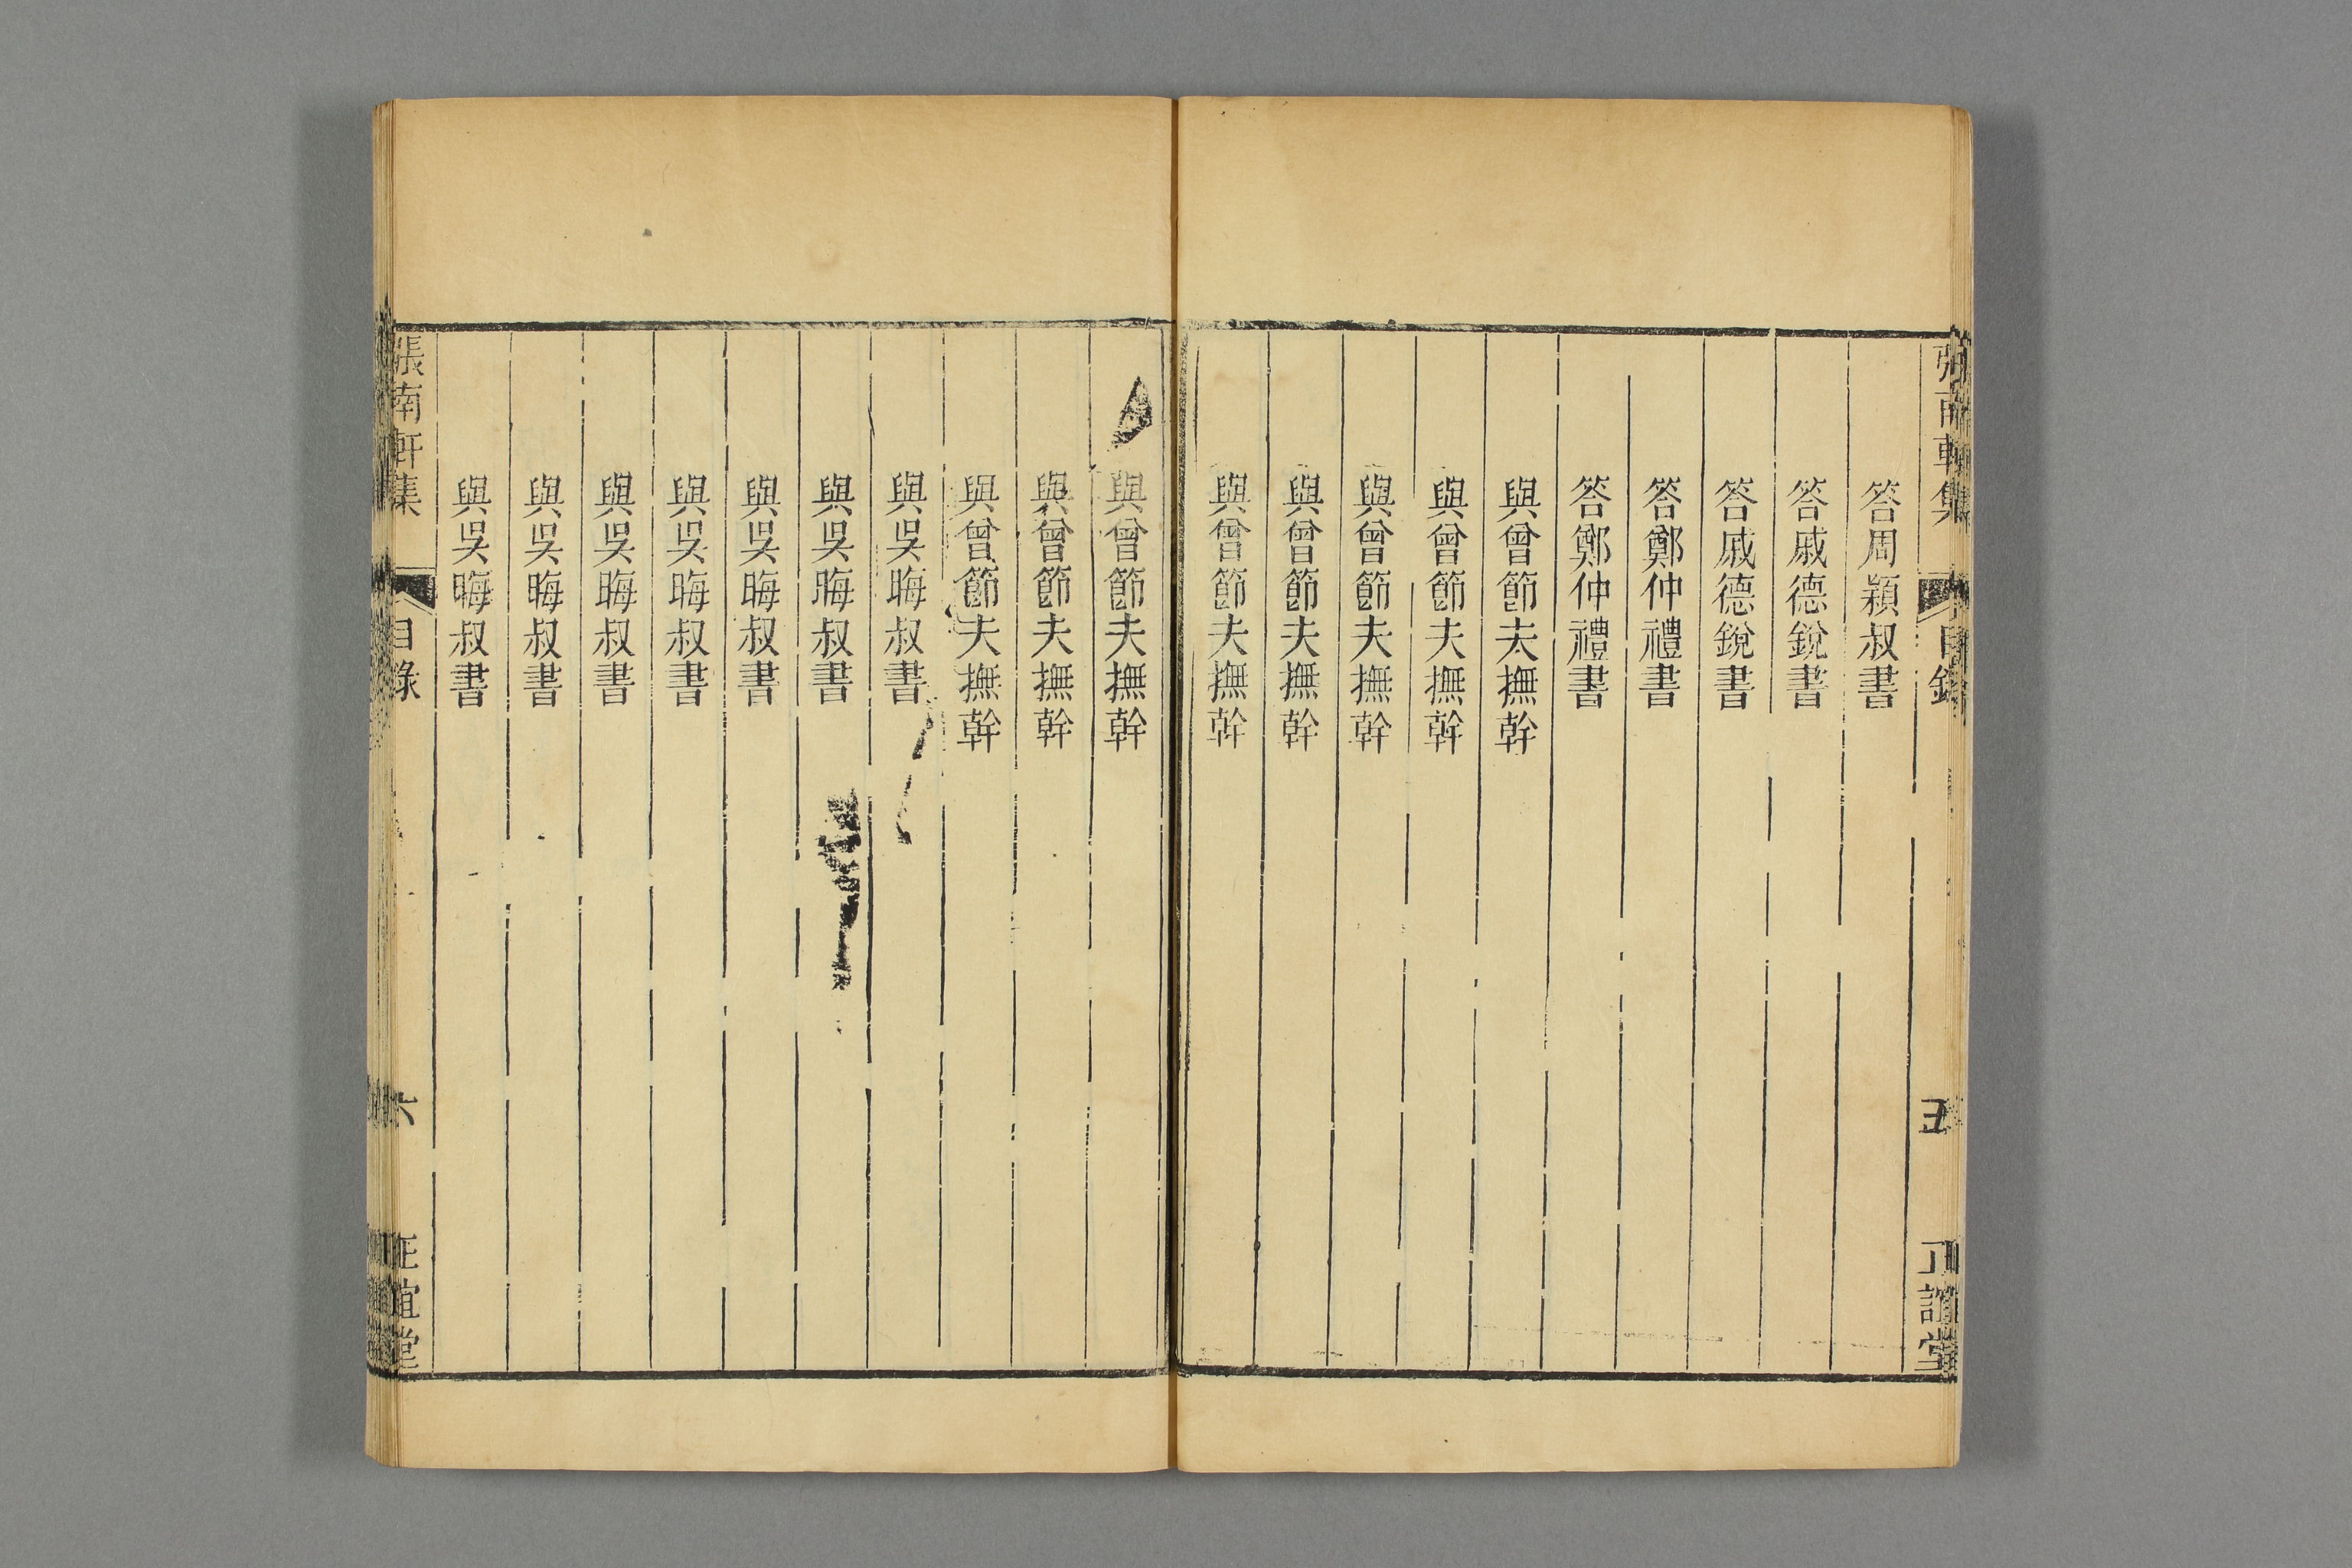 張南軒集 目錄 五 正誼堂
答周穎叔書
答戚德銳書
答戚德銳書
答鄭仲禮書
答鄭仲禮書
與曾節夫撫幹
與曾節夫撫幹
與曾節夫撫幹
與曾節夫撫幹
與曾節夫撫幹
與曾節夫撫幹
與曾節夫撫幹
與曾節夫撫幹
與吳晦叔書
與吳晦叔書
與吳晦叔書
與吳晦叔書
與吳晦叔書
與吳晦叔書
與吳晦叔書
張南軒集 目錄 六 正誼堂